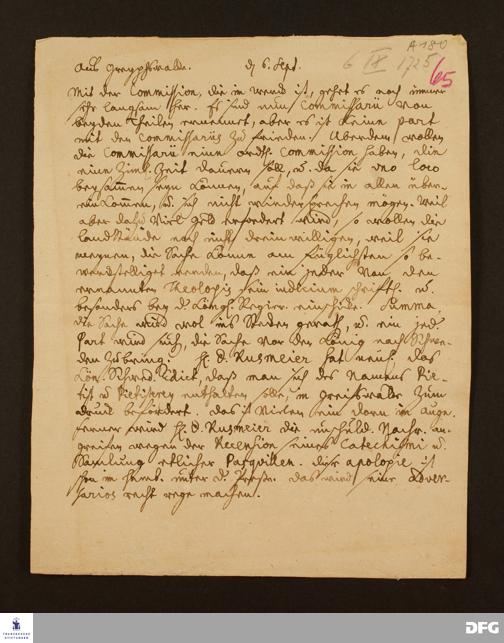 A 180
6 IX 1725
65
Aus Greyphswalde. d. 6. Sept.
Mit der Commission, die im werck ist, gehet es noch immer
sehr langsam her. Es sind nun Commissarii von
beyden Theilen ernennet, aber es ist keine part
mit den Commissariis zu frieden. Uberdem wollen
die Commissarii eine ordtl. Commission haben, die
eine Ziml. Zeit dauren soll, u. da sie uno loco
beysammen seyn können, auf daß sie in allen überein
kommen, u. sich nicht wiedersprechen mögen. Weil
aber dazu viel Geld erfordert wird, so wollen die
Landstände noch nicht drein willigen, weil sie
meynen, die Sache könne am füglichsten so be-
werckstelliget werden, daß ein jeder von den
ernannten Theologis sein iudicium schrifftl. u.
besonders bey d. Königl. Regier. einschicke. Summa,
die Sache wird wol ins Stecken gerath, u. ein jede
Part wird sich, die Sache vor den König nach Schwe-
den zu bring. H. D. Rusmeier hat neul. das
Kön. Schwed. Edict, daß man sich des Namens Pie-
tist u. Pietisterey enthalten solle, in Greifswalde zum
druck befördert. das ist vielen ein dorn im auge.
ferner wird H. D. Rusmeier die unschuld. Nachr. an-
greifen wegen der Recension seines Catechismi u.
Samlung etlicher Pasqvillen. diese apologie ist
schon in unter d. Presse. das wird seine Adver-
sarios recht rege machen.
FRANCKESCHE
STIFTUNGEN
DFG